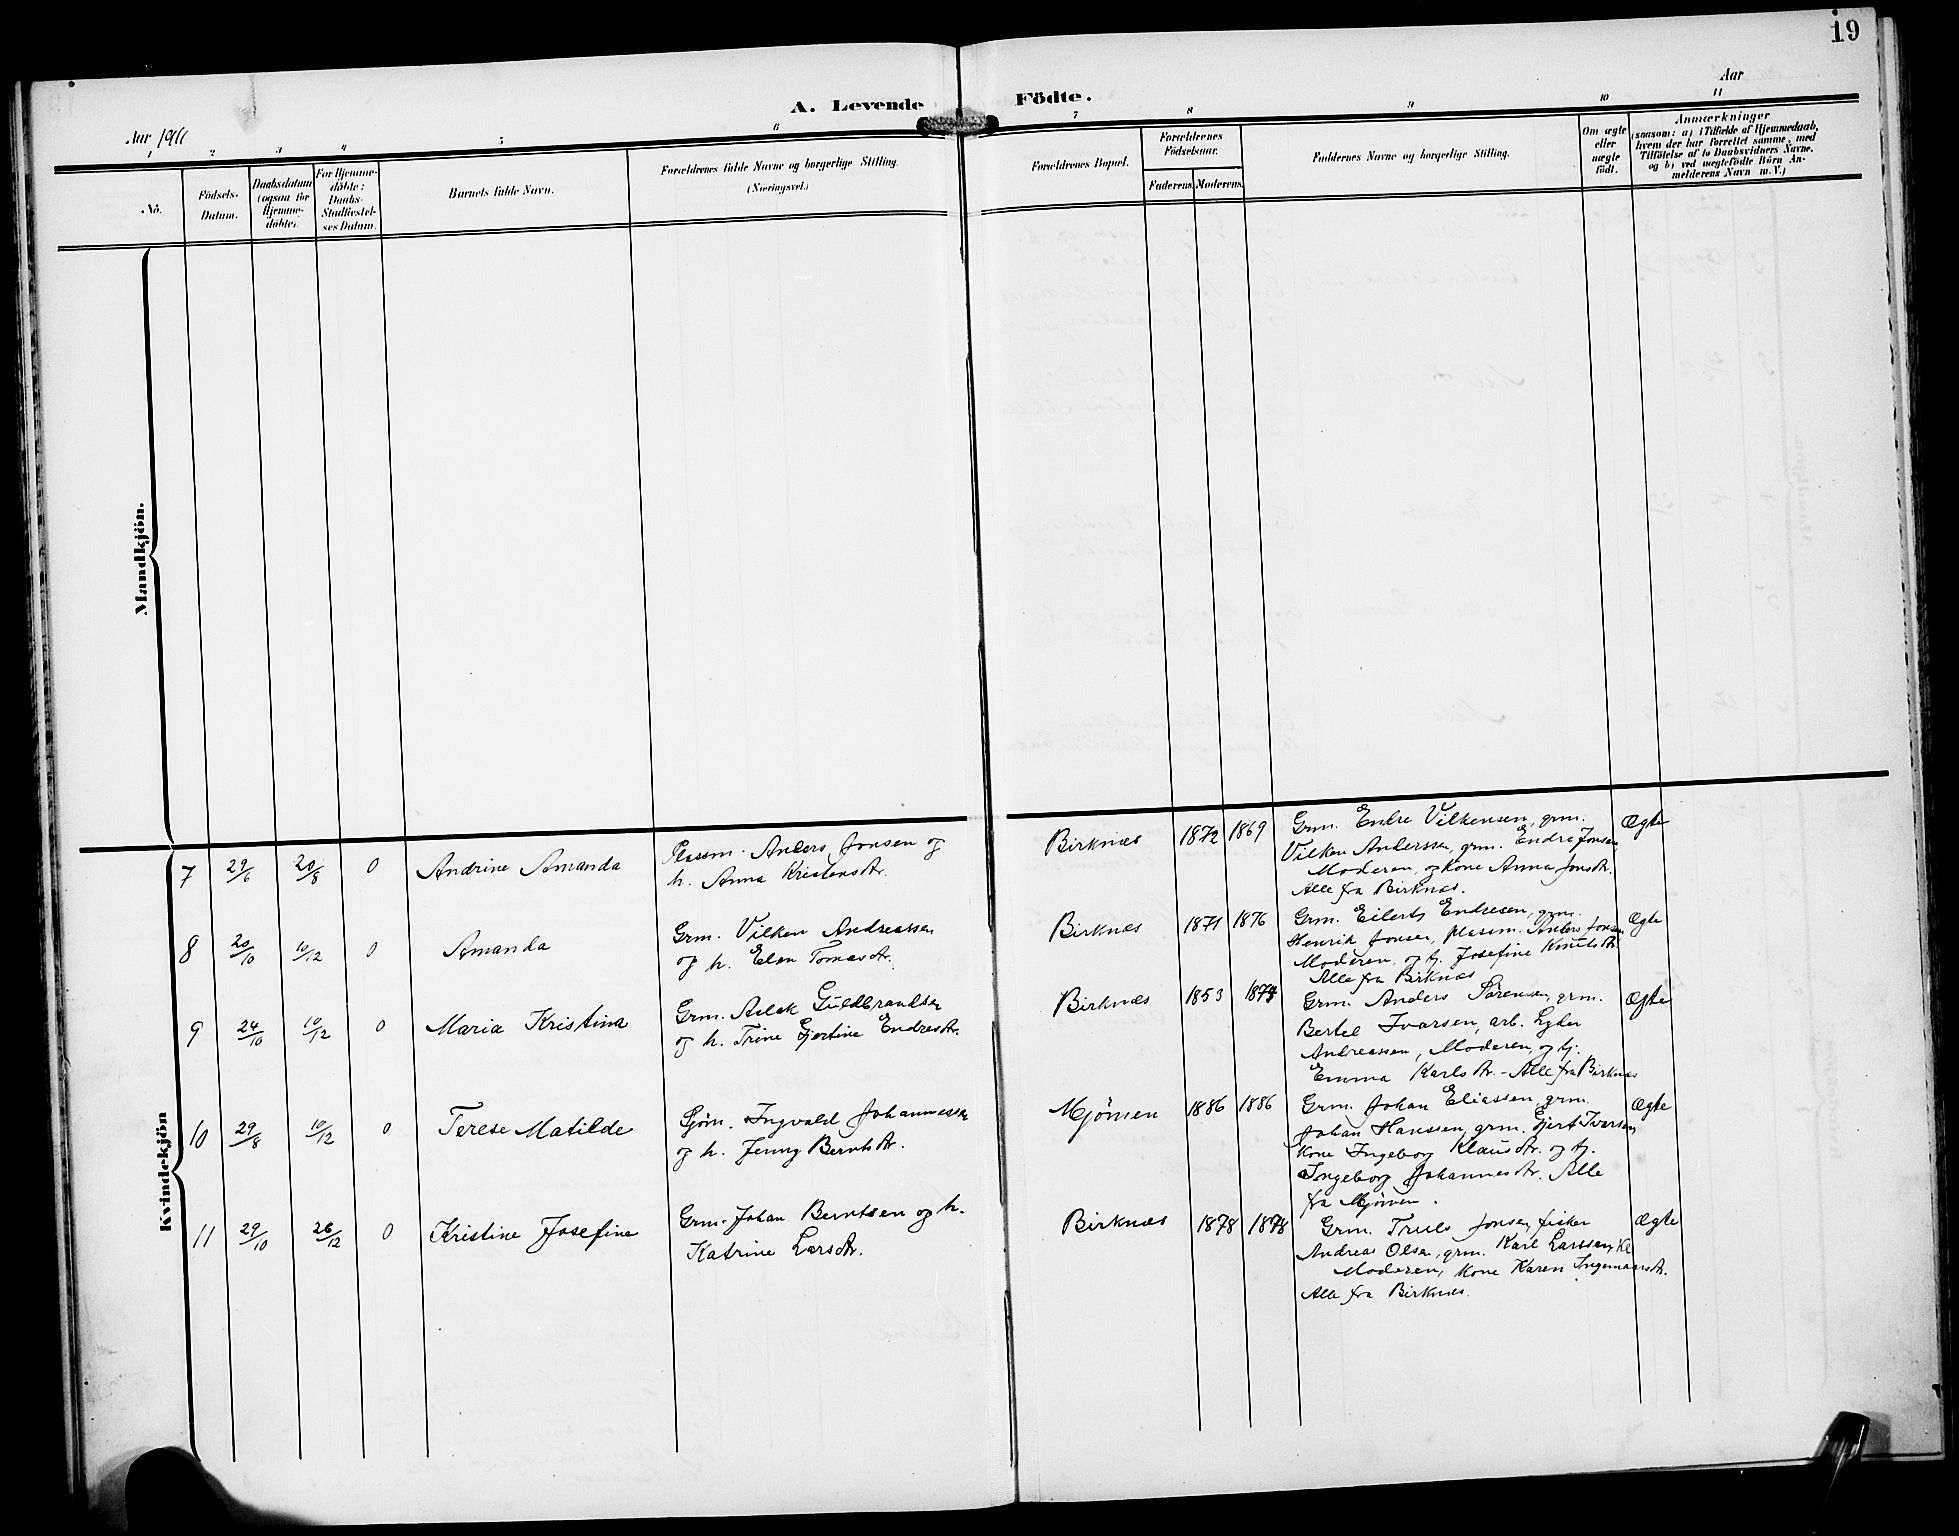 19
A. Levende Födte.
Aar 1911
Aar
1 2 3 4 5 6 7 8 9 10 11
No.
Födsels-
Datum.
Daabsdatum
(ogsaa for
Hjemme-
döbte).
For Hjemme-
döbte:
Daabs-
Stadfæstel-
ses Datum.
Barnets fulde Navn.
Forældrenes fulde Navne og borgerlige Stilling.
(Næringsvei.)
Forældrenes Bopæl.
Forældrenes
Födselsaar.
Faderens. Moderens.
Faddernes Navne og borgerlige Stilling.
Om ægte
eller
uægte
födt.
Anmærkninger
(saasom: a) i Tilfælde af Hjemmedaab,
hvem der har forrettet samme, med
Tilföielse af to Daabsvidners Navne.
og b) ved uægtefödte Börn An-
melderens Navn m. V.)
Mandkjön.
Kvindekjön
7 29/6 20/8 0 Andrine Amanda
Plassm. Anders Jonsen og
h. Anna Kristensdtr.
Birknæs 1872 1869
Grm. Endre Vilkensen, grm.
Vilken Anderssen, grm. Endre Jonsen
Moderen, og kone Anna Jonsdtr.
Alle fra Birknæs.
Ægte
8 20/10 10/12 0 Amanda
Grm. Vilken Andreassen
og h. Elen Tomasdtr.
Birknæs 1871 1876
Grm. Eilert Endresen, grm.
Henrik Jonsen, plassm. Anders Jonsen
Moderen, og tj. Josefine Knutsdtr.
Alle fra Birknæs
Ægte
9 24/10 10/12 0 Maria Kristina
Grm. Aslak Guldbrandsen
og h. Trine Gjertine Endresdtr.
Birknæs 1853 1874
Grm. Anders Sörensen, grm.
Bertel Ivarsen, arb. Lyder
Andreassen, Moderen, og tj.
Emma Karlsdtr. - Alle fra Birknæs
Ægte
10 29/8 10/12 0 Terese Matilde
Sjöm. Ingvald Johannessen
og h. Jenny Berntsdtr.
Mjömen 1886 1886
Grm. Johan Eliassen, grm.
Johan Hanssen, grm. Gjert Ivarsen,
Kone Ingeborg Klausdtr. og tj.
Ingeborg Johannesdtr. Alle
fra Mjömen.
Ægte
11 29/10 26/12 0 Kristine Josefine
Grm. Johan Berntsen og h.
Katrine Larsdtr.
Birknæs 1878 1878
Grm. Truls Jonsen, fisker
Andreas Olsen, grm. Karl Larssen,
Moderen, Kone Karen Ingemannsdtr.
Alle fra Birknæs.
Ægte